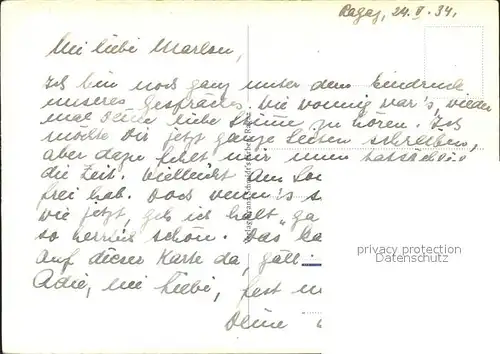 Ragaz, 24. V. 34.
Mei liebi Marlou,
Ich bin noch ganz unter dem Eindruck
unseres Gesprächs. Wie wonnig war's, wieder
mal Deine liebe Stimme zu hören. Ich
möchte Dir jetzt ganze Seiten schreiben,
aber dazu fehlt mir nun tatsächlich
die Zeit. Vielleicht am
frei hab. Doch wenn's s
wie jetzt, geb ich halt "ga
so herrlich schön. Das ka
Auf dieser Karte da, gäll
Adie, mei Liebi, fest
Deine
privacy protection
for buyers